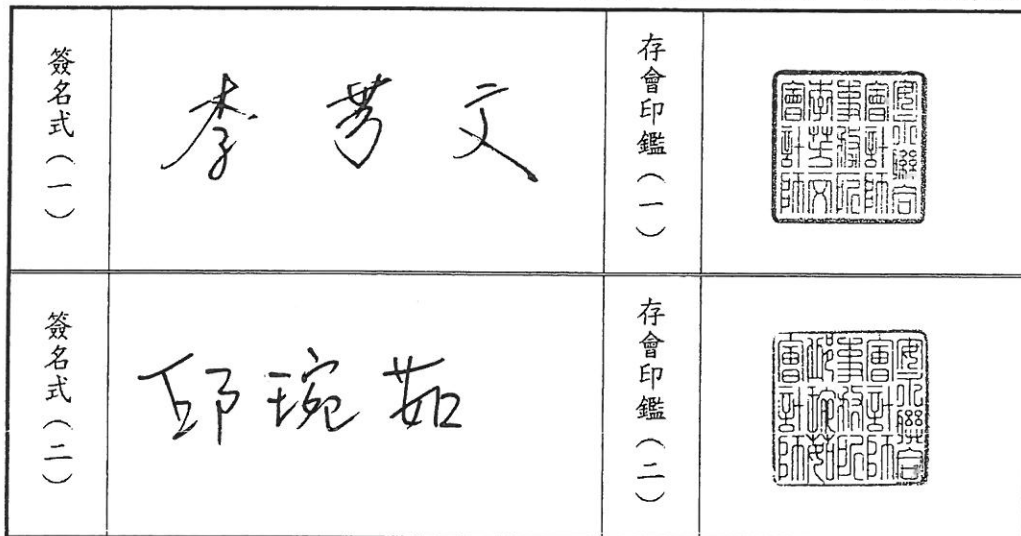 簽名式（一）
李芳文
存會印鑑（一）
安永聯合
會計師
事務所
李芳文
會計師
簽名式（二）
邱琬茹
存會印鑑（二）
安永聯合
會計師
事務所
邱琬茹
會計師